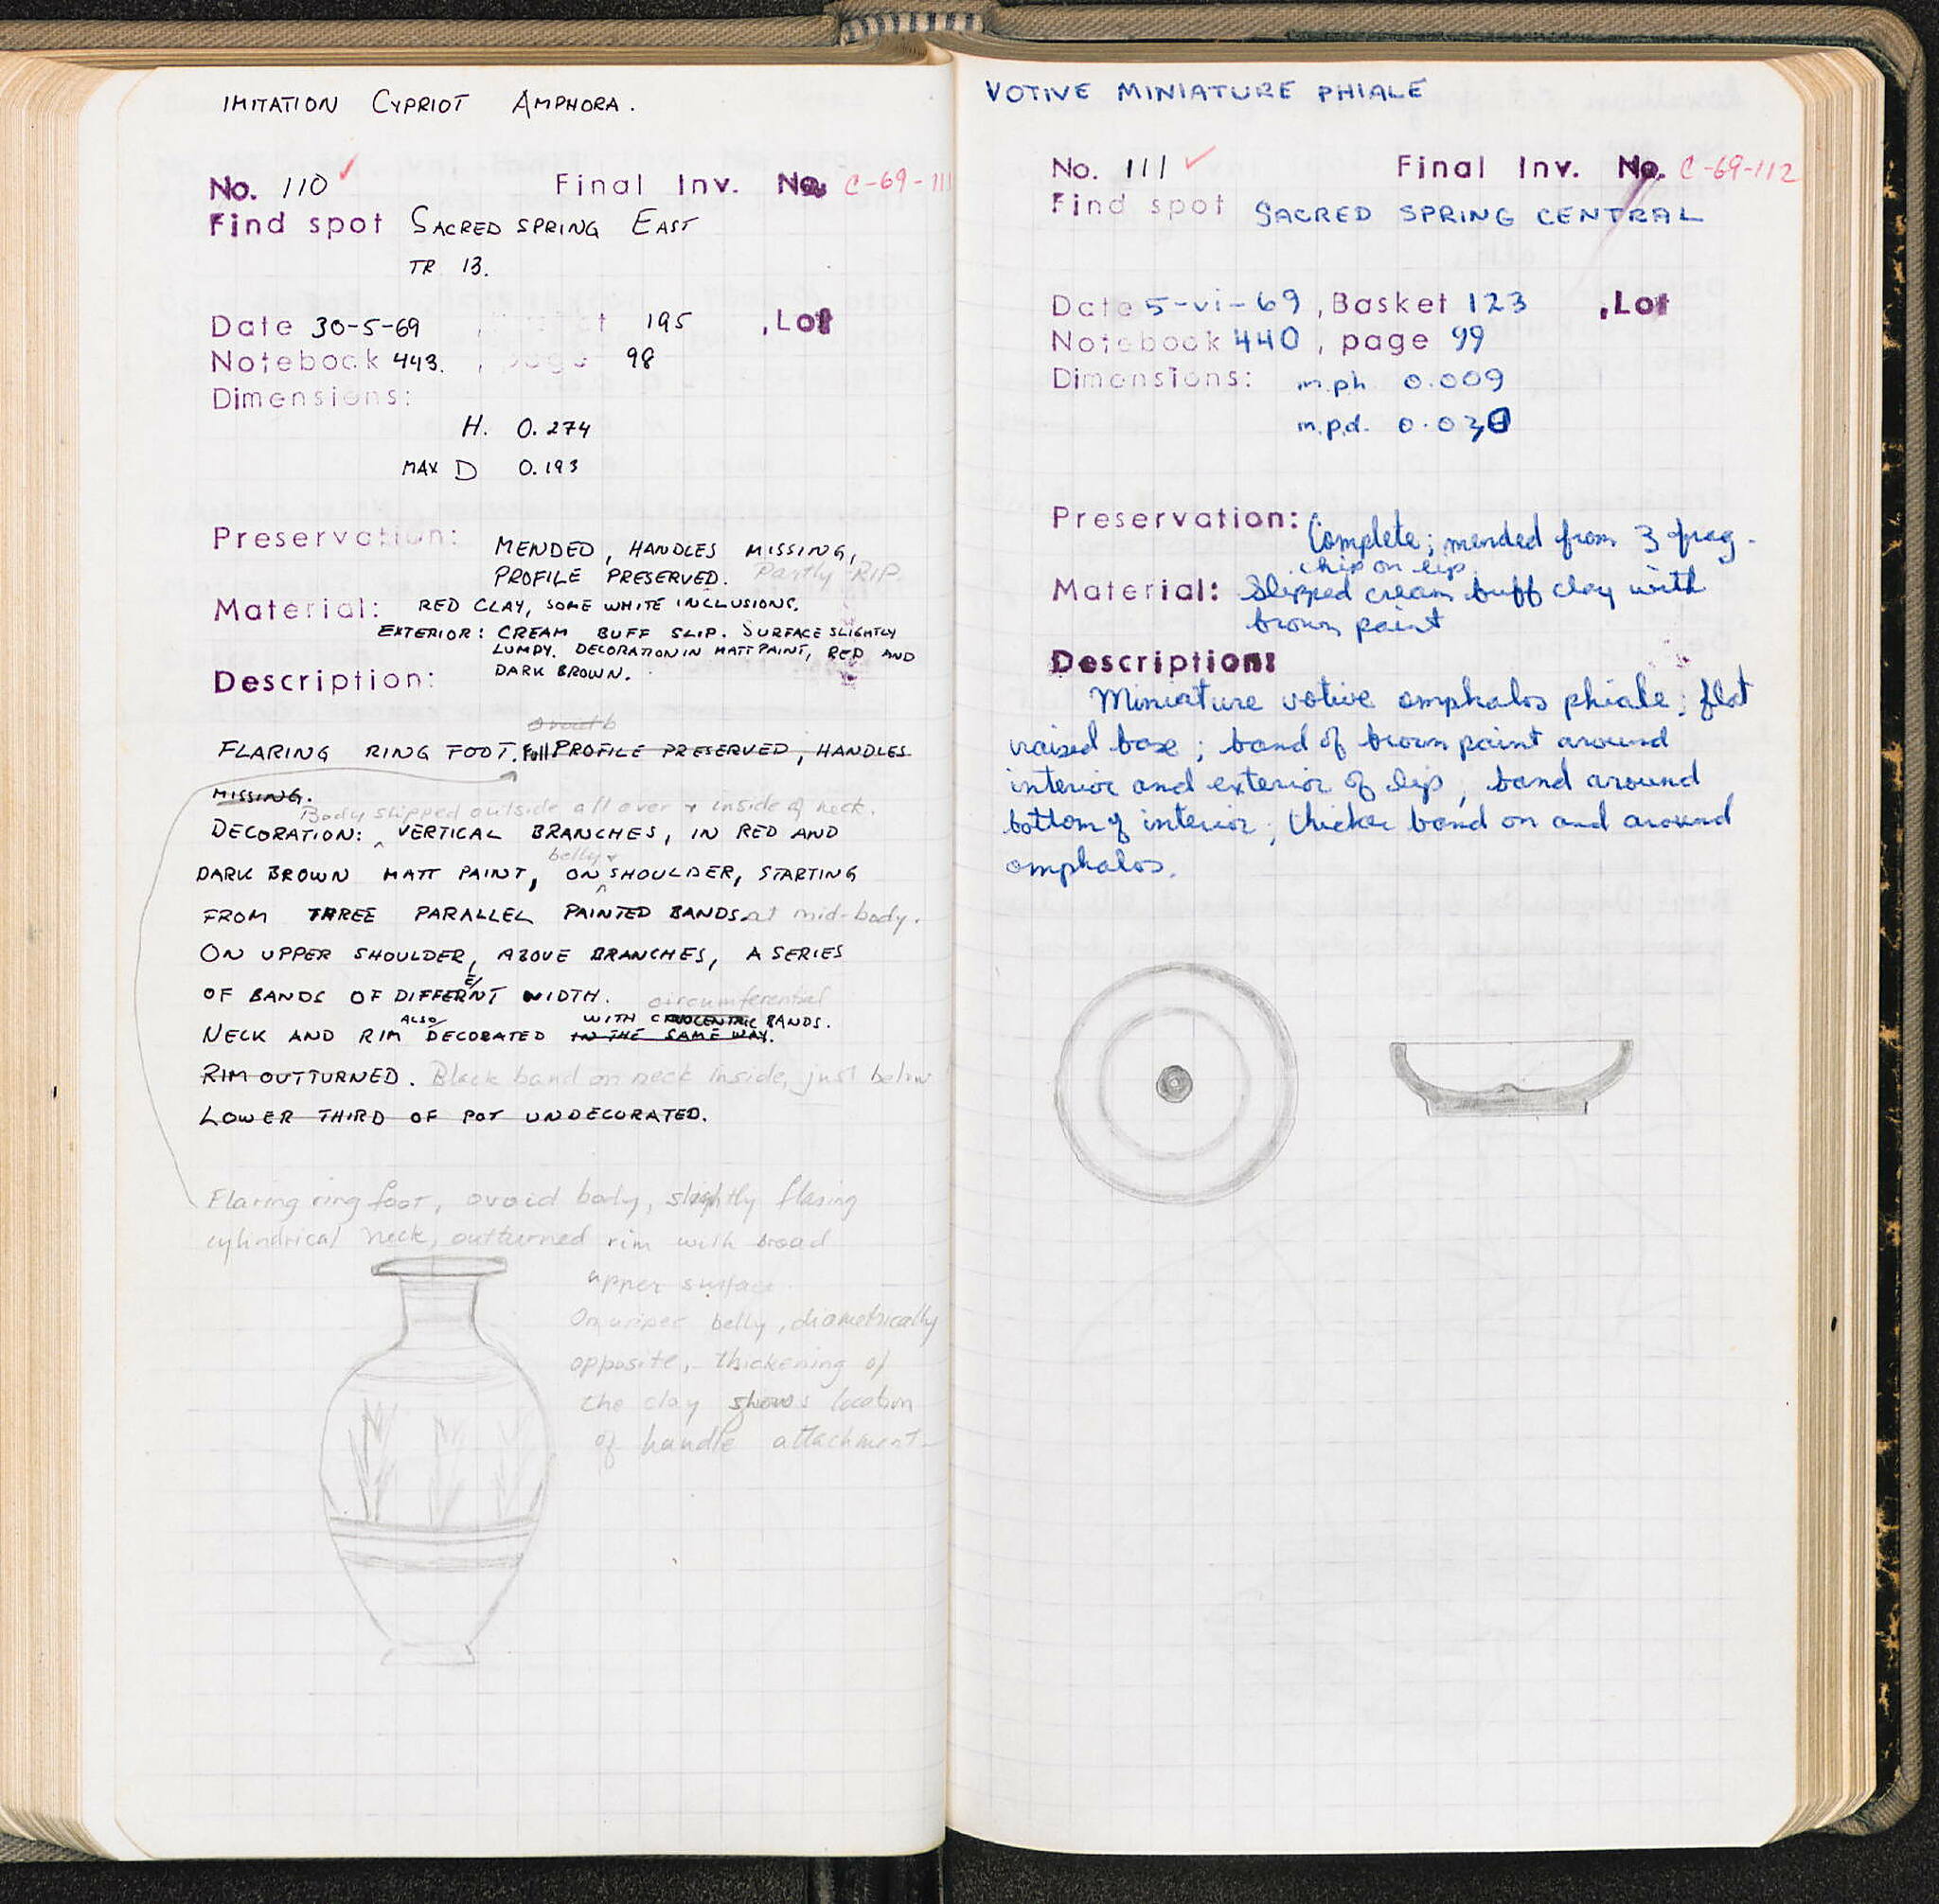 IMITATION CYPRIOT AMPHORA.
No. 110 ✓ Final Inv. No. C-69-111
Find spot SACRED SPRING EAST
TR 13.
Date 30-5-69 , 195 , Lot
Notebook 443. , page 98
Dimensions:
H. 0.274
MAX D 0.193
Preservation: MENDED, HANDLES MISSING,
PROFILE PRESERVED. Partly RIP.
Material: RED CLAY, SOME WHITE INCLUSIONS.
EXTERIOR: CREAM BUFF SLIP. SURFACE SLIGHTLY
LUMPY. DECORATION IN MATT PAINT, RED AND
DARK BROWN.
Description:
FLARING RING FOOT. Full PROFILE PRESERVED, HANDLES
MISSING.
Body slipped outside all over + inside of neck.
DECORATION: VERTICAL BRANCHES, IN RED AND
belly +
DARK BROWN MATT PAINT, ON SHOULDER, STARTING
FROM THREE PARALLEL PAINTED BANDS at mid-body.
ON UPPER SHOULDER, ABOVE BRANCHES, A SERIES
OF BANDS OF DIFFERENT WIDTH. circumferential
ALSO WITH CONCENTRIC BANDS.
NECK AND RIM DECORATED IN THE SAME WAY.
RIM OUTTURNED. Black band on neck inside, just below
LOWER THIRD OF POT UNDECORATED.
Flaring ring foot, ovoid body, slightly flaring
cylindrical neck, outturned rim with broad
upper surface.
On upper belly, diametrically
opposite, thickening of
the clay shows location
of handle attachment.
VOTIVE MINIATURE PHIALE
No. 111 ✓ Final Inv. No. C-69-112
Find spot SACRED SPRING CENTRAL
Date 5-vi-69 , Basket 123 , Lot
Notebook 440 , page 99
Dimensions: m.ph 0.009
m.p.d.
Preservation: Complete; mended from 3 frag.
chip on lip.
Material: Slipped cream buff clay with
brown paint
Description:
Miniature votive omphalos phiale; flat
raised base; band of brown paint around
interior and exterior of lip; band around
bottom of interior; thicker band on and around
omphalos.